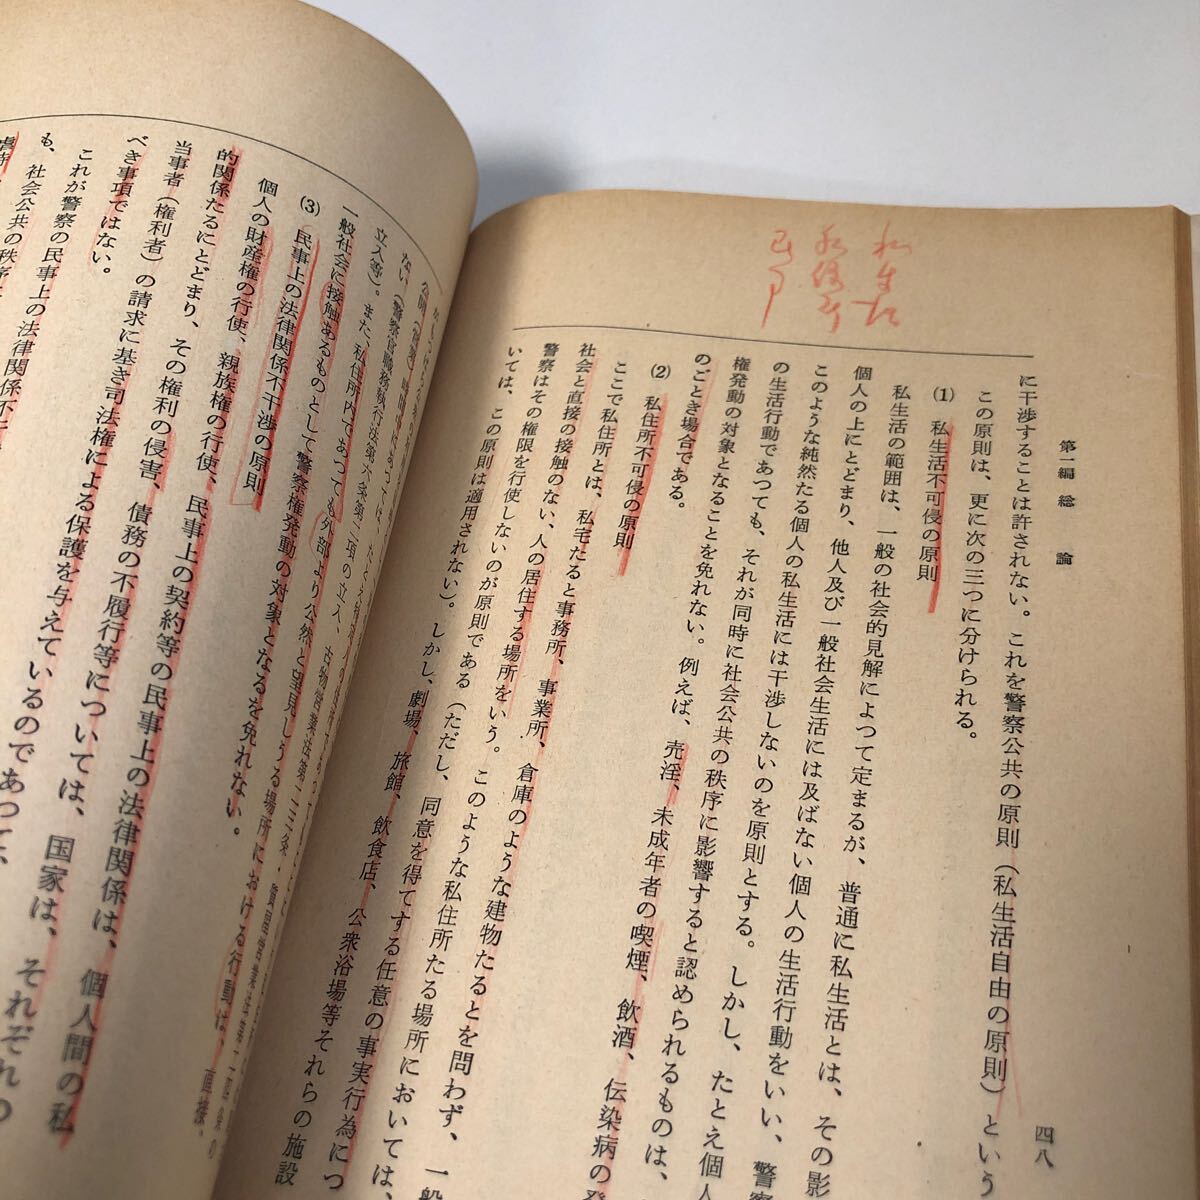 第一編 総 論
四八
に干渉することは許されない。これを警察公共の原則(私生活自由の原則)という
この原則は、更に次の三つに分けられる。
(1) 私生活不可侵の原則
私生活の範囲は、一般の社会的見解によつて定まるが、普通に私生活とは、その影
個人の上にとどまり、他人及び一般社会生活には及ばない個人の生活行動をいい、警
このような純然たる個人の私生活には干渉しないのを原則とする。しかし、たとえ個人
の生活行動であつても、それが同時に社会公共の秩序に影響すると認められるものは、
権発動の対象となることを免れない。例えば、売淫、未成年者の喫煙、飲酒、伝染病の発
のごとき場合である。
(2) 私住所不可侵の原則
ここで私住所とは、私宅たると事務所、事業所、倉庫のような建物たるとを問わず、一般
社会と直接の接触のない、人の居住する場所をいう。このような私住所たる場所においては、
警察はその権限を行使しないのが原則である(ただし、同意を得てする任意の事実行為につ
いては、この原則は適用されない)。しかし、劇場、旅館、飲食店、公衆浴場等それらの施設
ない(警察官職務執行法第六条第二項の立入、古物営業法第二三条・質屋営業法第二四条の
立入等)。また、私住所内であつても外部より公然と望見しうる場所における行動は、直接、
一般社会に接触あるものとして警察権発動の対象となるを免れない。
(3) 民事上の法律関係不干渉の原則
個人の財産権の行使、親族権の行使、民事上の契約等の民事上の法律関係は、個人間の私
的関係たるにとどまり、その権利の侵害、債務の不履行等については、国家は、それぞれの
当事者(権利者)の請求に基き司法権による保護を与えているのであつて、
べき事項ではない。
これが警察の民事上の法律関係不干
も、社会公共の秩序に